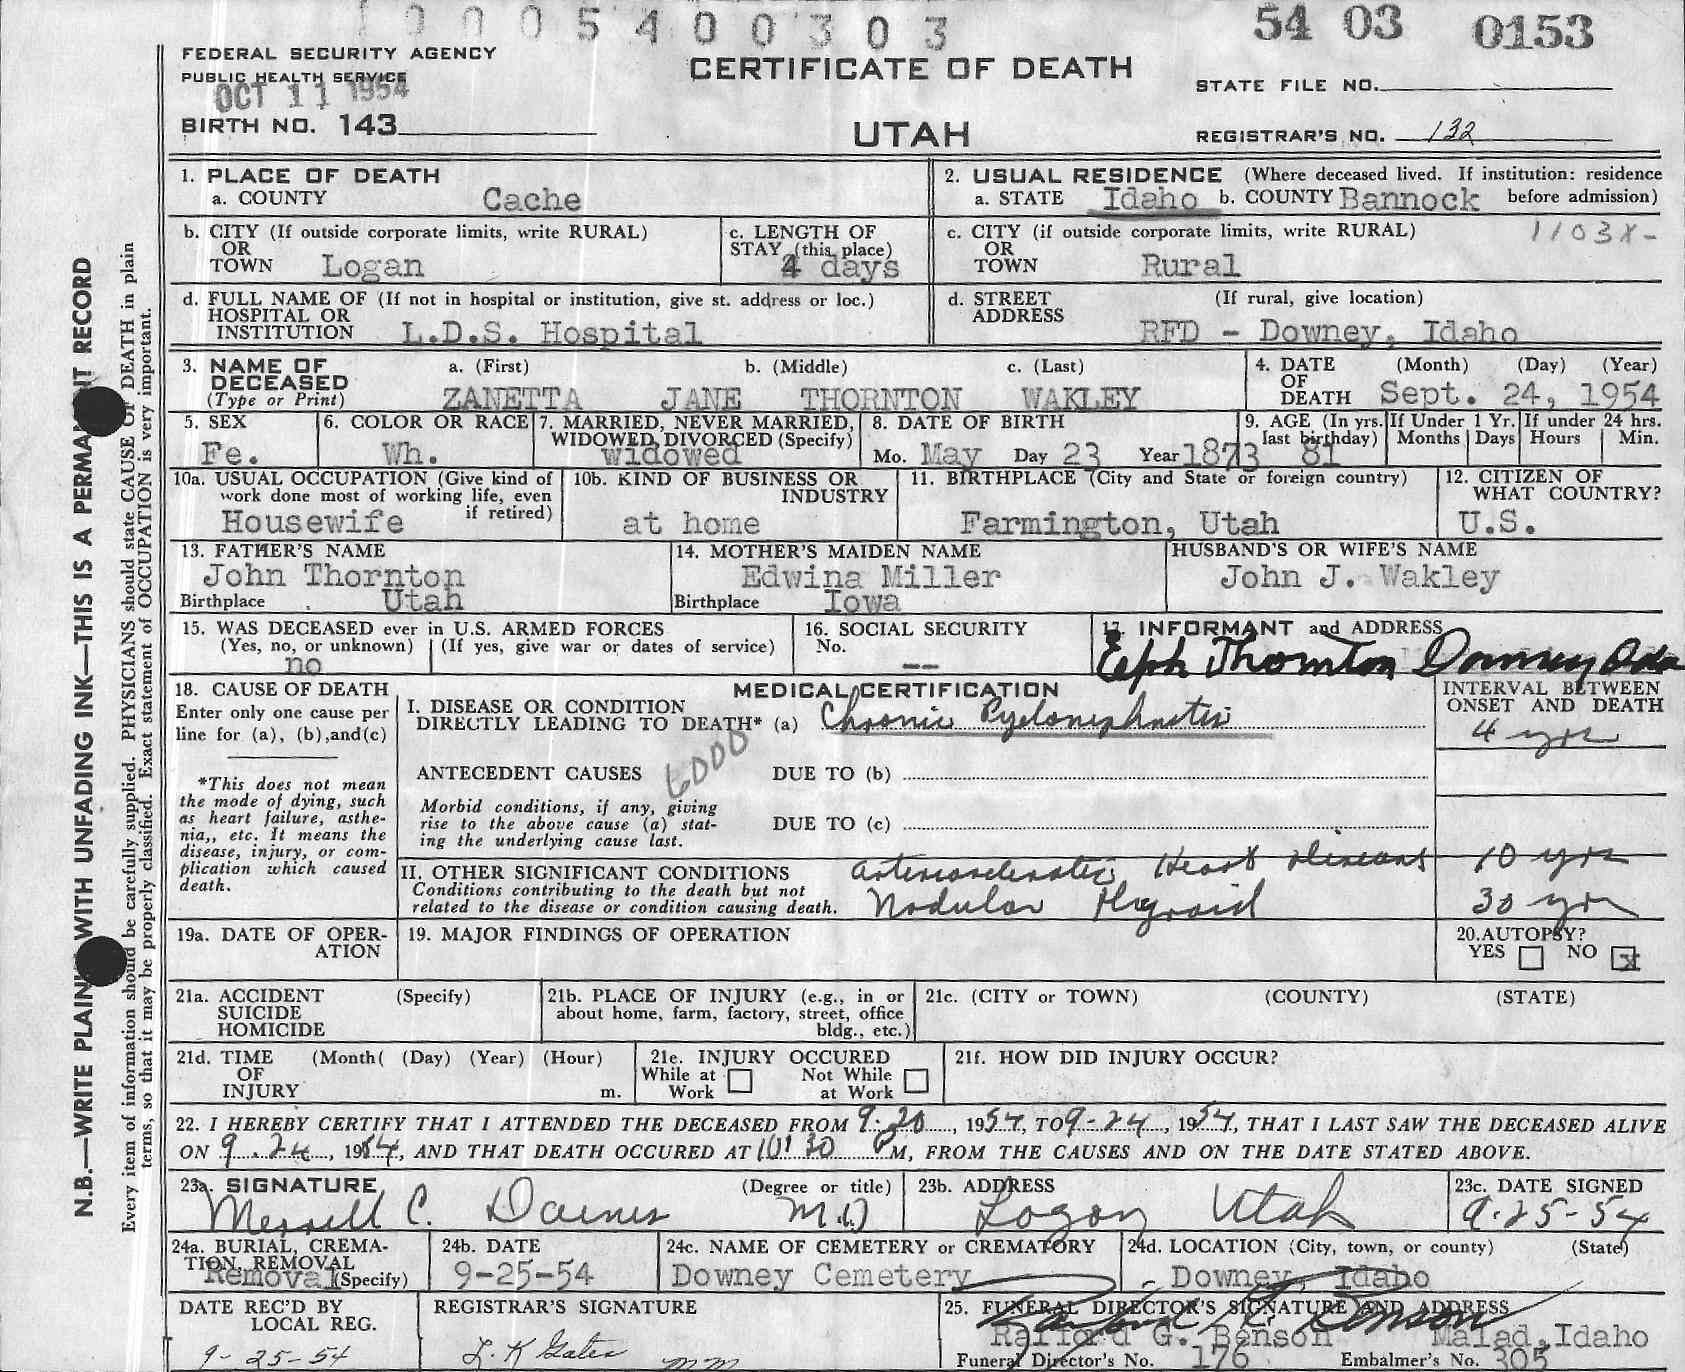 0005400303
54 03 0153
FEDERAL SECURITY AGENCY
PUBLIC HEALTH SERVICE
OCT 11 1954
CERTIFICATE OF DEATH
STATE FILE NO.
BIRTH NO. 143
UTAH
REGISTRAR'S NO. 132
N.B.—WRITE PLAIN WITH UNFADING INK—THIS IS A PERMA RECORD
Every item of information should be carefully supplied. PHYSICIANS should state CAUSE OF DEATH in plain
terms, so that it may be properly classified. Exact statement of OCCUPATION is very important.
1. PLACE OF DEATH
a. COUNTY Cache
2. USUAL RESIDENCE (Where deceased lived. If institution: residence
a. STATE Idaho b. COUNTY Bannock before admission)
b. CITY (If outside corporate limits, write RURAL)
OR
TOWN Logan
c. LENGTH OF
STAY (this place)
4 days
c. CITY (if outside corporate limits, write RURAL) 1103X-
OR
TOWN Rural
d. FULL NAME OF (If not in hospital or institution, give st. address or loc.)
HOSPITAL OR
INSTITUTION L.D.S. Hospital
d. STREET (If rural, give location)
ADDRESS
RFD - Downey, Idaho
3. NAME OF a. (First) b. (Middle) c. (Last)
DECEASED
(Type or Print) ZANETTA JANE THORNTON WAKLEY
4. DATE (Month) (Day) (Year)
OF
DEATH Sept. 24, 1954
5. SEX
Fe.
6. COLOR OR RACE
Wh.
7. MARRIED, NEVER MARRIED,
WIDOWED, DIVORCED (Specify)
widowed
8. DATE OF BIRTH
Mo. May Day 23 Year 1873
9. AGE (In yrs. If Under 1 Yr. If under 24 hrs.
last birthday) Months Days Hours Min.
81
10a. USUAL OCCUPATION (Give kind of
work done most of working life, even
if retired)
Housewife
10b. KIND OF BUSINESS OR
INDUSTRY
at home
11. BIRTHPLACE (City and State or foreign country)
Farmington, Utah
12. CITIZEN OF
WHAT COUNTRY?
U.S.
13. FATHER'S NAME
John Thornton
Birthplace Utah
14. MOTHER'S MAIDEN NAME
Edwina Miller
Birthplace Iowa
HUSBAND'S OR WIFE'S NAME
John J. Wakley
15. WAS DECEASED ever in U.S. ARMED FORCES
(Yes, no, or unknown) (If yes, give war or dates of service)
no
16. SOCIAL SECURITY
No.
--
17. INFORMANT and ADDRESS
Thornton Downey Ida
18. CAUSE OF DEATH
Enter only one cause per
line for (a), (b),and(c)
*This does not mean
the mode of dying, such
as heart failure, asthe-
nia,, etc. It means the
disease, injury, or com-
plication which caused
death.
MEDICAL CERTIFICATION
INTERVAL BETWEEN
ONSET AND DEATH
I. DISEASE OR CONDITION
DIRECTLY LEADING TO DEATH* (a) Chronic Pyelonephritis 4 yrs
6000
ANTECEDENT CAUSES DUE TO (b)
Morbid conditions, if any, giving
rise to the above cause (a) stat-
ing the underlying cause last.
DUE TO (c)
II. OTHER SIGNIFICANT CONDITIONS
Conditions contributing to the death but not
related to the disease or condition causing death.
Arteriosclerotic Heart disease 10 yrs
Nodular Thyroid 30 yrs
19a. DATE OF OPER-
ATION
19. MAJOR FINDINGS OF OPERATION
20.AUTOPSY?
YES NO x
21a. ACCIDENT (Specify)
SUICIDE
HOMICIDE
21b. PLACE OF INJURY (e.g., in or
about home, farm, factory, street, office
bldg., etc.)
21c. (CITY or TOWN) (COUNTY) (STATE)
21d. TIME (Month( (Day) (Year) (Hour)
OF
INJURY m.
21e. INJURY OCCURED
While at Not While
Work at Work
21f. HOW DID INJURY OCCUR?
22. I HEREBY CERTIFY THAT I ATTENDED THE DECEASED FROM 9-20, 1954, TO 9-24, 1954, THAT I LAST SAW THE DECEASED ALIVE
ON 9-24, 1954, AND THAT DEATH OCCURED AT 10:30 P M, FROM THE CAUSES AND ON THE DATE STATED ABOVE.
23a. SIGNATURE (Degree or title)
Merrill C. Daines M.D
23b. ADDRESS
Logan Utah
23c. DATE SIGNED
9-25-54
24a. BURIAL, CREMA-
TION, REMOVAL
Removal (Specify)
24b. DATE
9-25-54
24c. NAME OF CEMETERY or CREMATORY
Downey Cemetery
24d. LOCATION (City, town, or county) (State)
Downey, Idaho
DATE REC'D BY
LOCAL REG.
9-25-54
REGISTRAR'S SIGNATURE
L. K Gates mm
25. FUNERAL DIRECTOR'S SIGNATURE AND ADDRESS
Rafford G. Benson Malad, Idaho
Funeral Director's No. 176 Embalmer's No. 305